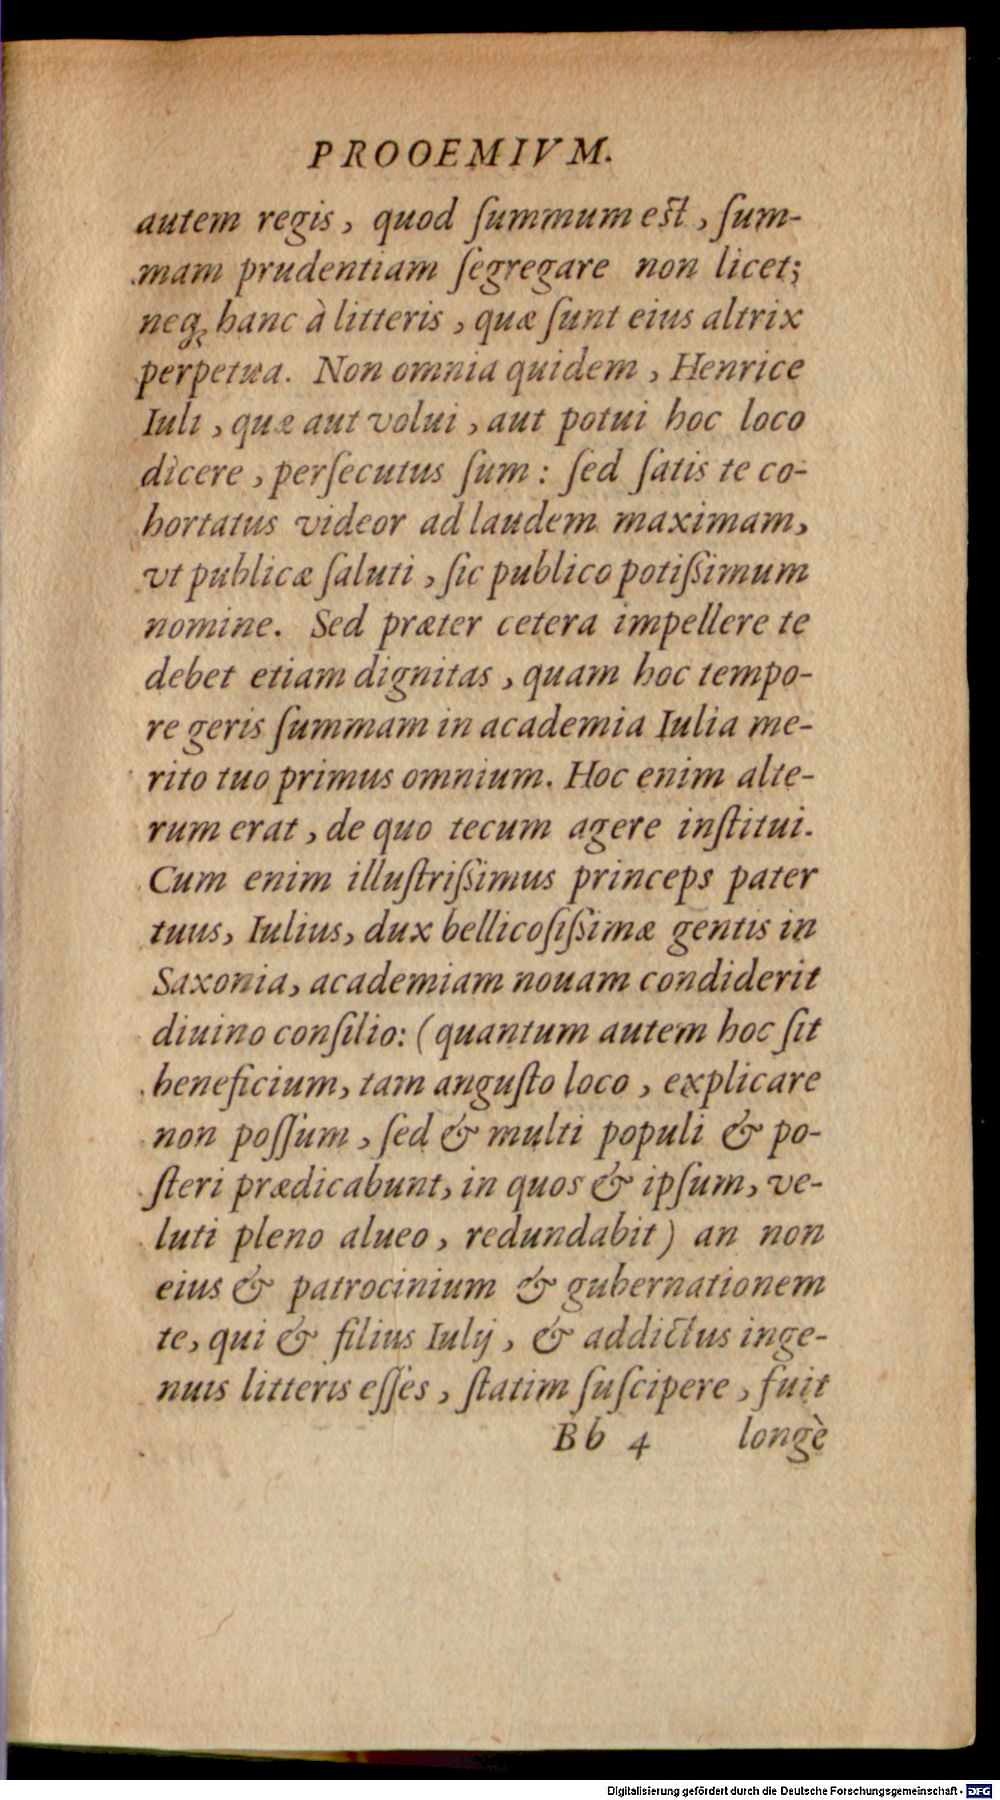 PROOEMIVM.
autem regis, quod ſummum eſt, ſum-
mam prudentiam ſegregare non licet;
neq; hanc à litteris, quæ ſunt eius altrix
perpetua. Non omnia quidem, Henrice
Iuli, quæ aut volui, aut potui hoc loco
dicere, perſecutus ſum: ſed ſatis te co-
hortatus videor ad laudem maximam,
vt publicæ ſaluti, ſic publico potiſſimum
nomine. Sed præter cetera impellere te
debet etiam dignitas, quam hoc tempo-
re geris ſummam in academia Iulia me-
rito tuo primus omnium. Hoc enim alte-
rum erat, de quo tecum agere inſtitui.
Cum enim illuſtriſſimus princeps pater
tuus, Iulius, dux bellicoſiſſimæ gentis in
Saxonia, academiam nouam condiderit
diuino conſilio: (quantum autem hoc ſit
beneficium, tam anguſto loco, explicare
non poſſum, ſed & multi populi & po-
ſteri prædicabunt, in quos & ipſum, ve-
luti pleno alueo, redundabit) an non
eius & patrocinium & gubernationem
te, qui & filius Iulij, & addictus inge-
nuis litteris eſſes, ſtatim ſuſcipere, fuit
Bb 4 longè
Digitalisierung gefördert durch die Deutsche Forschungsgemeinschaft - DFG